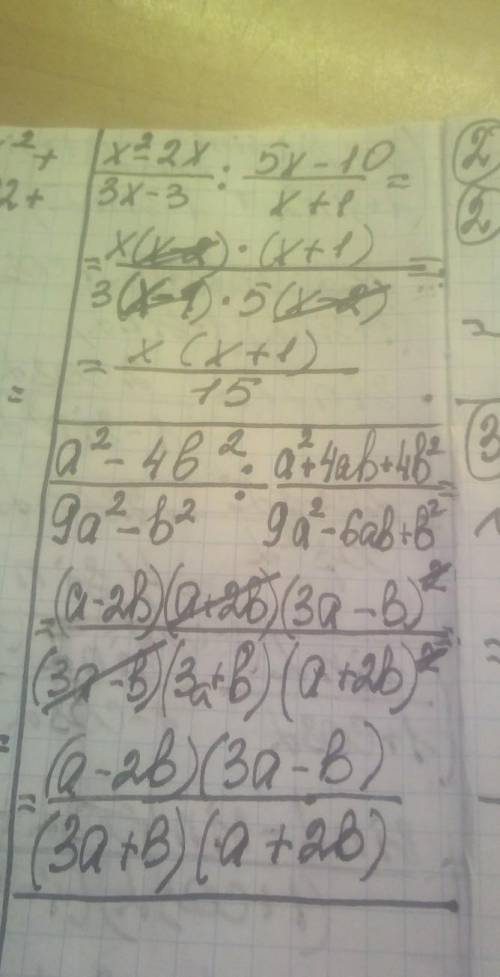 ² +
2 +
(x² - 2x)/(3x - 3) : (5x - 10)/(x + 1) =
= (x(x - 2) · (x + 1))/(3(x - 1) · 5(x - 2)) =
= (x (x + 1))/15
=
(a² - 4b²)/(9a² - b²) : (a² + 4ab + 4b²)/(9a² - 6ab + b²) =
= ((a - 2b)(a + 2b)(3a - b)²)/((3a - b)(3a + b)(a + 2b)²) =
= ((a - 2b)(3a - b))/((3a + b)(a + 2b))
2
2
3